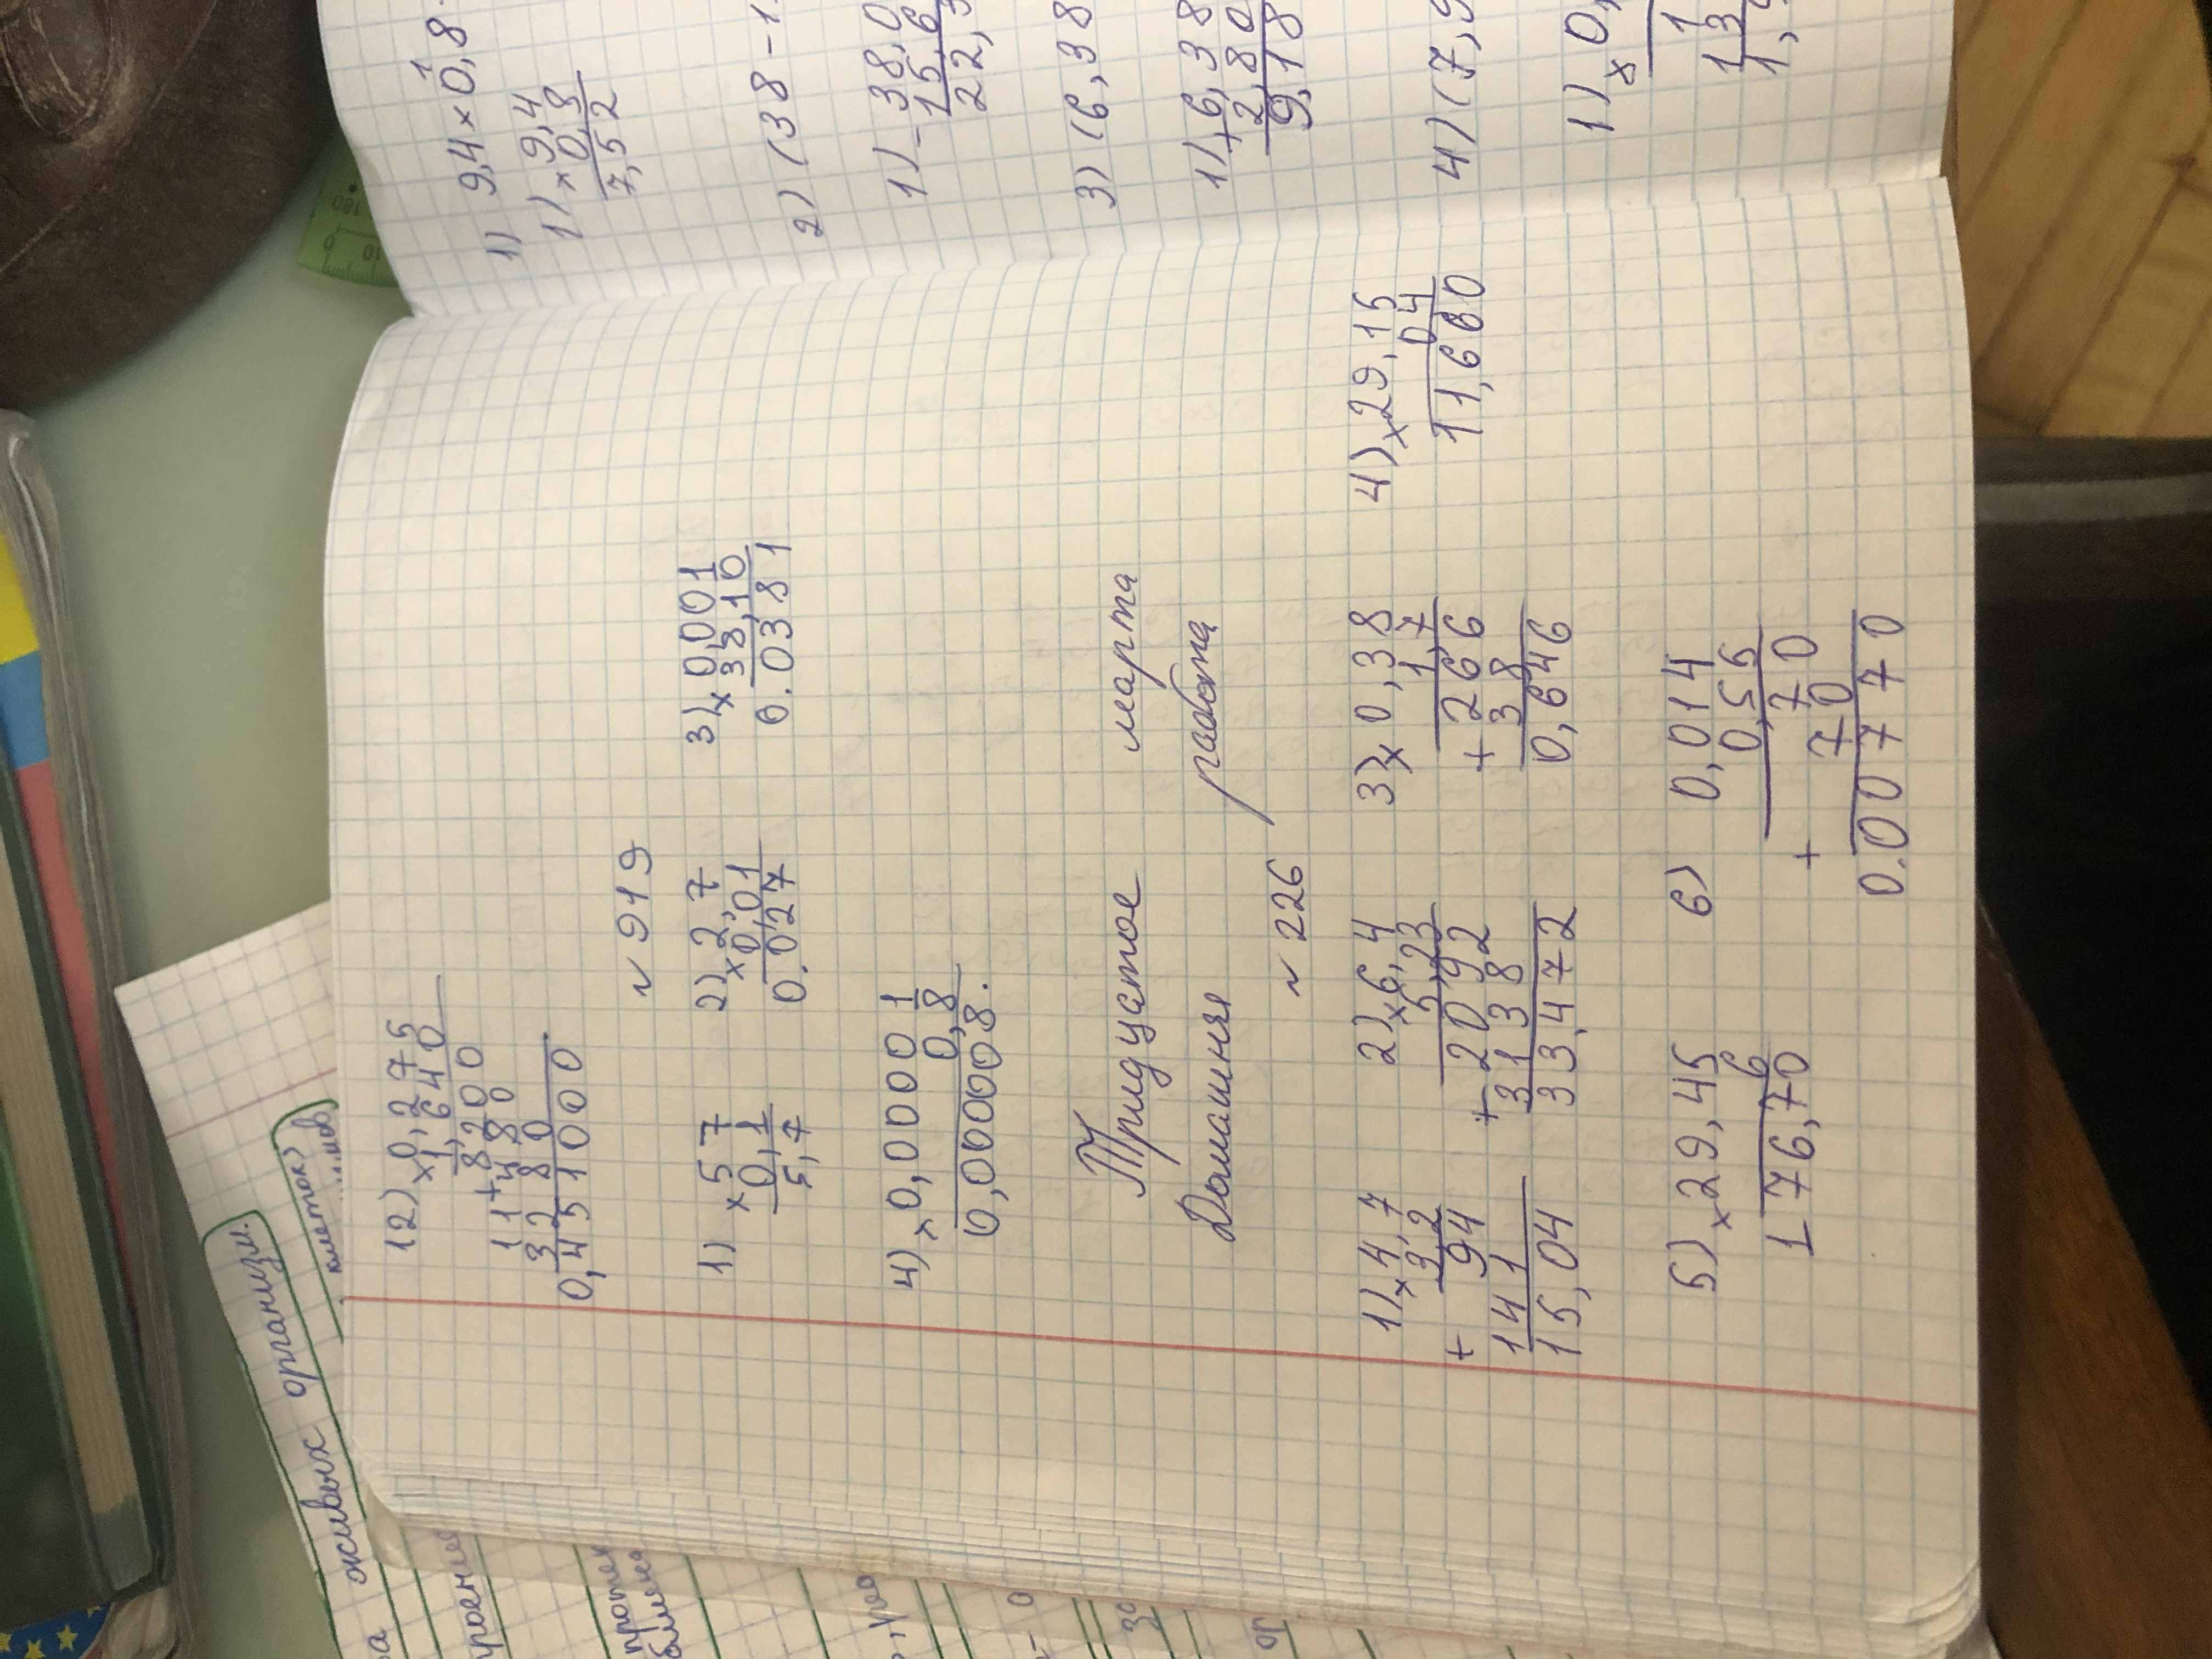 12) × 0,275
1,640
8200
11 + 480
3280
0,451000
~ 919
1) × 57
0,1
5,7
2) × 2,7
0,01
0.027
3) × 0,001
38,10
0.0381
4) × 0,00001
0,8
0,000008.
Тридцатое марта
Домашняя работа
~ 226
1) × 4,7
3,2
+ 94
141
15,04
2) × 6,4
5,23
+ 2092
3138
33,472
3) × 0,38
1,7
+ 266
38
0,646
4) × 29,15
0 4
11,660
5) × 29,45
6
176,70
6) 0,014
0,55
+ 770
70
0.007770
1) 9,4 × 0,8
1) × 9,4
0,8
7,52
2) (38 - 1
1) - 38,0
15,6
22,
3) (6,38
1) + 6,38
2,80
9,18
4) (7,9
1) × 0,
1
13
1,
живых организм.
клеток)